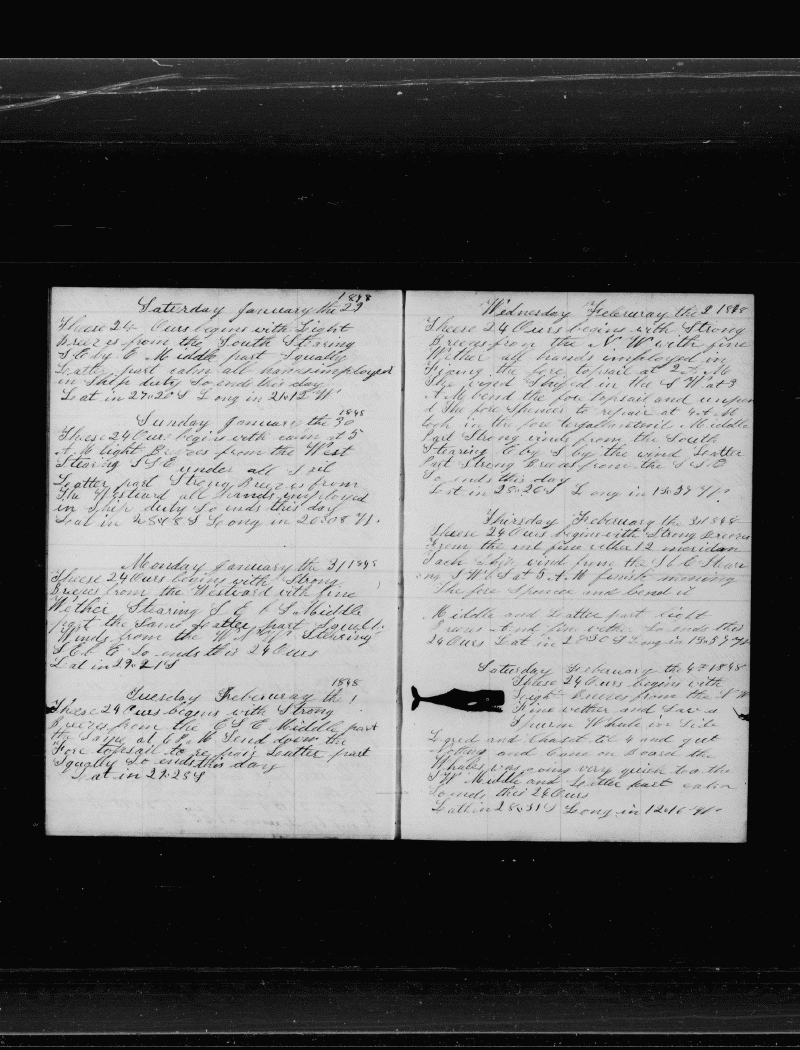 1848
Saturday January the 29
Theese 24 Ours begins with Light
Breezes from the South Stering
S E by E Middle part Squally
Latter part calm all hands imployed
in Ship duty So ends this day
Lat in 27=20 S Long in 21=12 W
1848
Sunday January the 30
Theese 24 Ours begins with calm at 5
A M light Breezes from the West
Stearing S S E under all Sail
Leatter part Strong Breezes from
The Westward all hands imployed
in Ship duty So ends this day
Lat in 28=48 S Long in 20=08 W.
Monday January the 31 1848
Theese 24 Ours begins with Strong
Brezes from the Westward with fine
Wether Stearing S E by S Middle
part the Same Leatter part Squally
Winds from the W N W Stehring
S E by E So ends this 24 Ours
Lat in 29=21 S
1848
Tuesday Feberuray the 1
Theese 24 Ours begins with Strong
Breezes from the E S E Middle part
the Same at 6 P M Send down the
Fore topsail to repair Leatter part
Squally So ends this day
Lat in 29=28 S
Wednesday Feberuray the 2 1848
Theese 24 Ours begins with Strong
Breezes from the N W with fine
Wether all hands imployed in
Fixing the fore topsail at 2 A M
The wind Shifted in the S W at 3
A M bend the fore topsail and unben
d The fore Spencer to repair at 4 A M
took in the fore togallantsail Middle
Part Strong winds from the South
Stearing E by S by the wind Leatter
Part Strong Breezes from the S S E
So ends this day
Lat in 28=26 S Long in 15=39 W
Thirsday Feberuary the 3d 1848
Theese 24 Ours begins with Strong Breezes
From the fine wether 12 meridian
Tack Ship wind from the S b E Stear
ing S W b S at 5 A M finish mending
The fore Spencer and bend it
Middle and Leatter part light
Brezes And fine wether So ends this
24 Ours Lat in 28=30 S Long in 13=39 W
Saturday Feberuary the 4th 1848
Theese 24 Ours begins with
Light Breezes from the N W
Fine wether and Saw a
Spurm Whale in Site
Lored and Chaset til 4 and got
nothing and Came on Board the
Whales was going very quick to the
S W Middle and Leatter part calm
So ends this 24 Ours
Lat in 28=31 S Long in 12=16 W